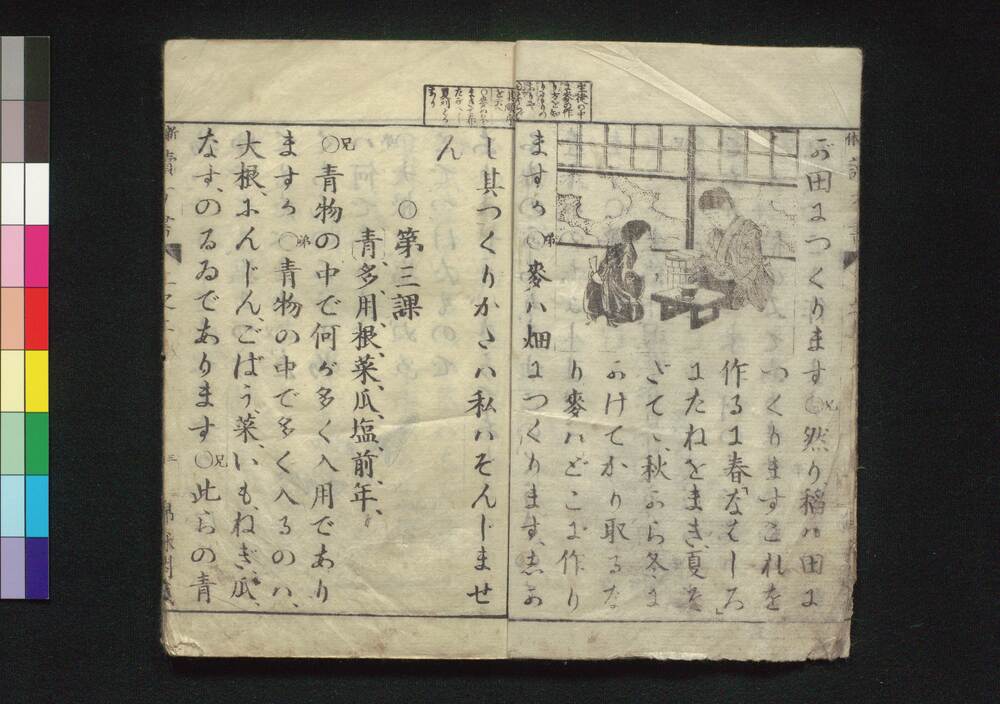 が田につくります○兄然り稲ハ田に
つくりますこれを
作るに春「なはしろ」
にたねをまき、夏そ
だて、秋から冬に
かけてかり取るな
り麥ハどこに作り
ますか○弟麥ハ畑につくります、志か
し其つくりかたハ私ハぞんじませ
ん
○第三課
青、多、用、根、菜、瓜、塩、前、年、
○兄青物の中で何が多く入用であり
ますか○弟青物の中で多く入るのハ、
大根、にんじん、ごばう、菜、いも、ねぎ、瓜、
なす、のるゐであります○兄此らの青
三